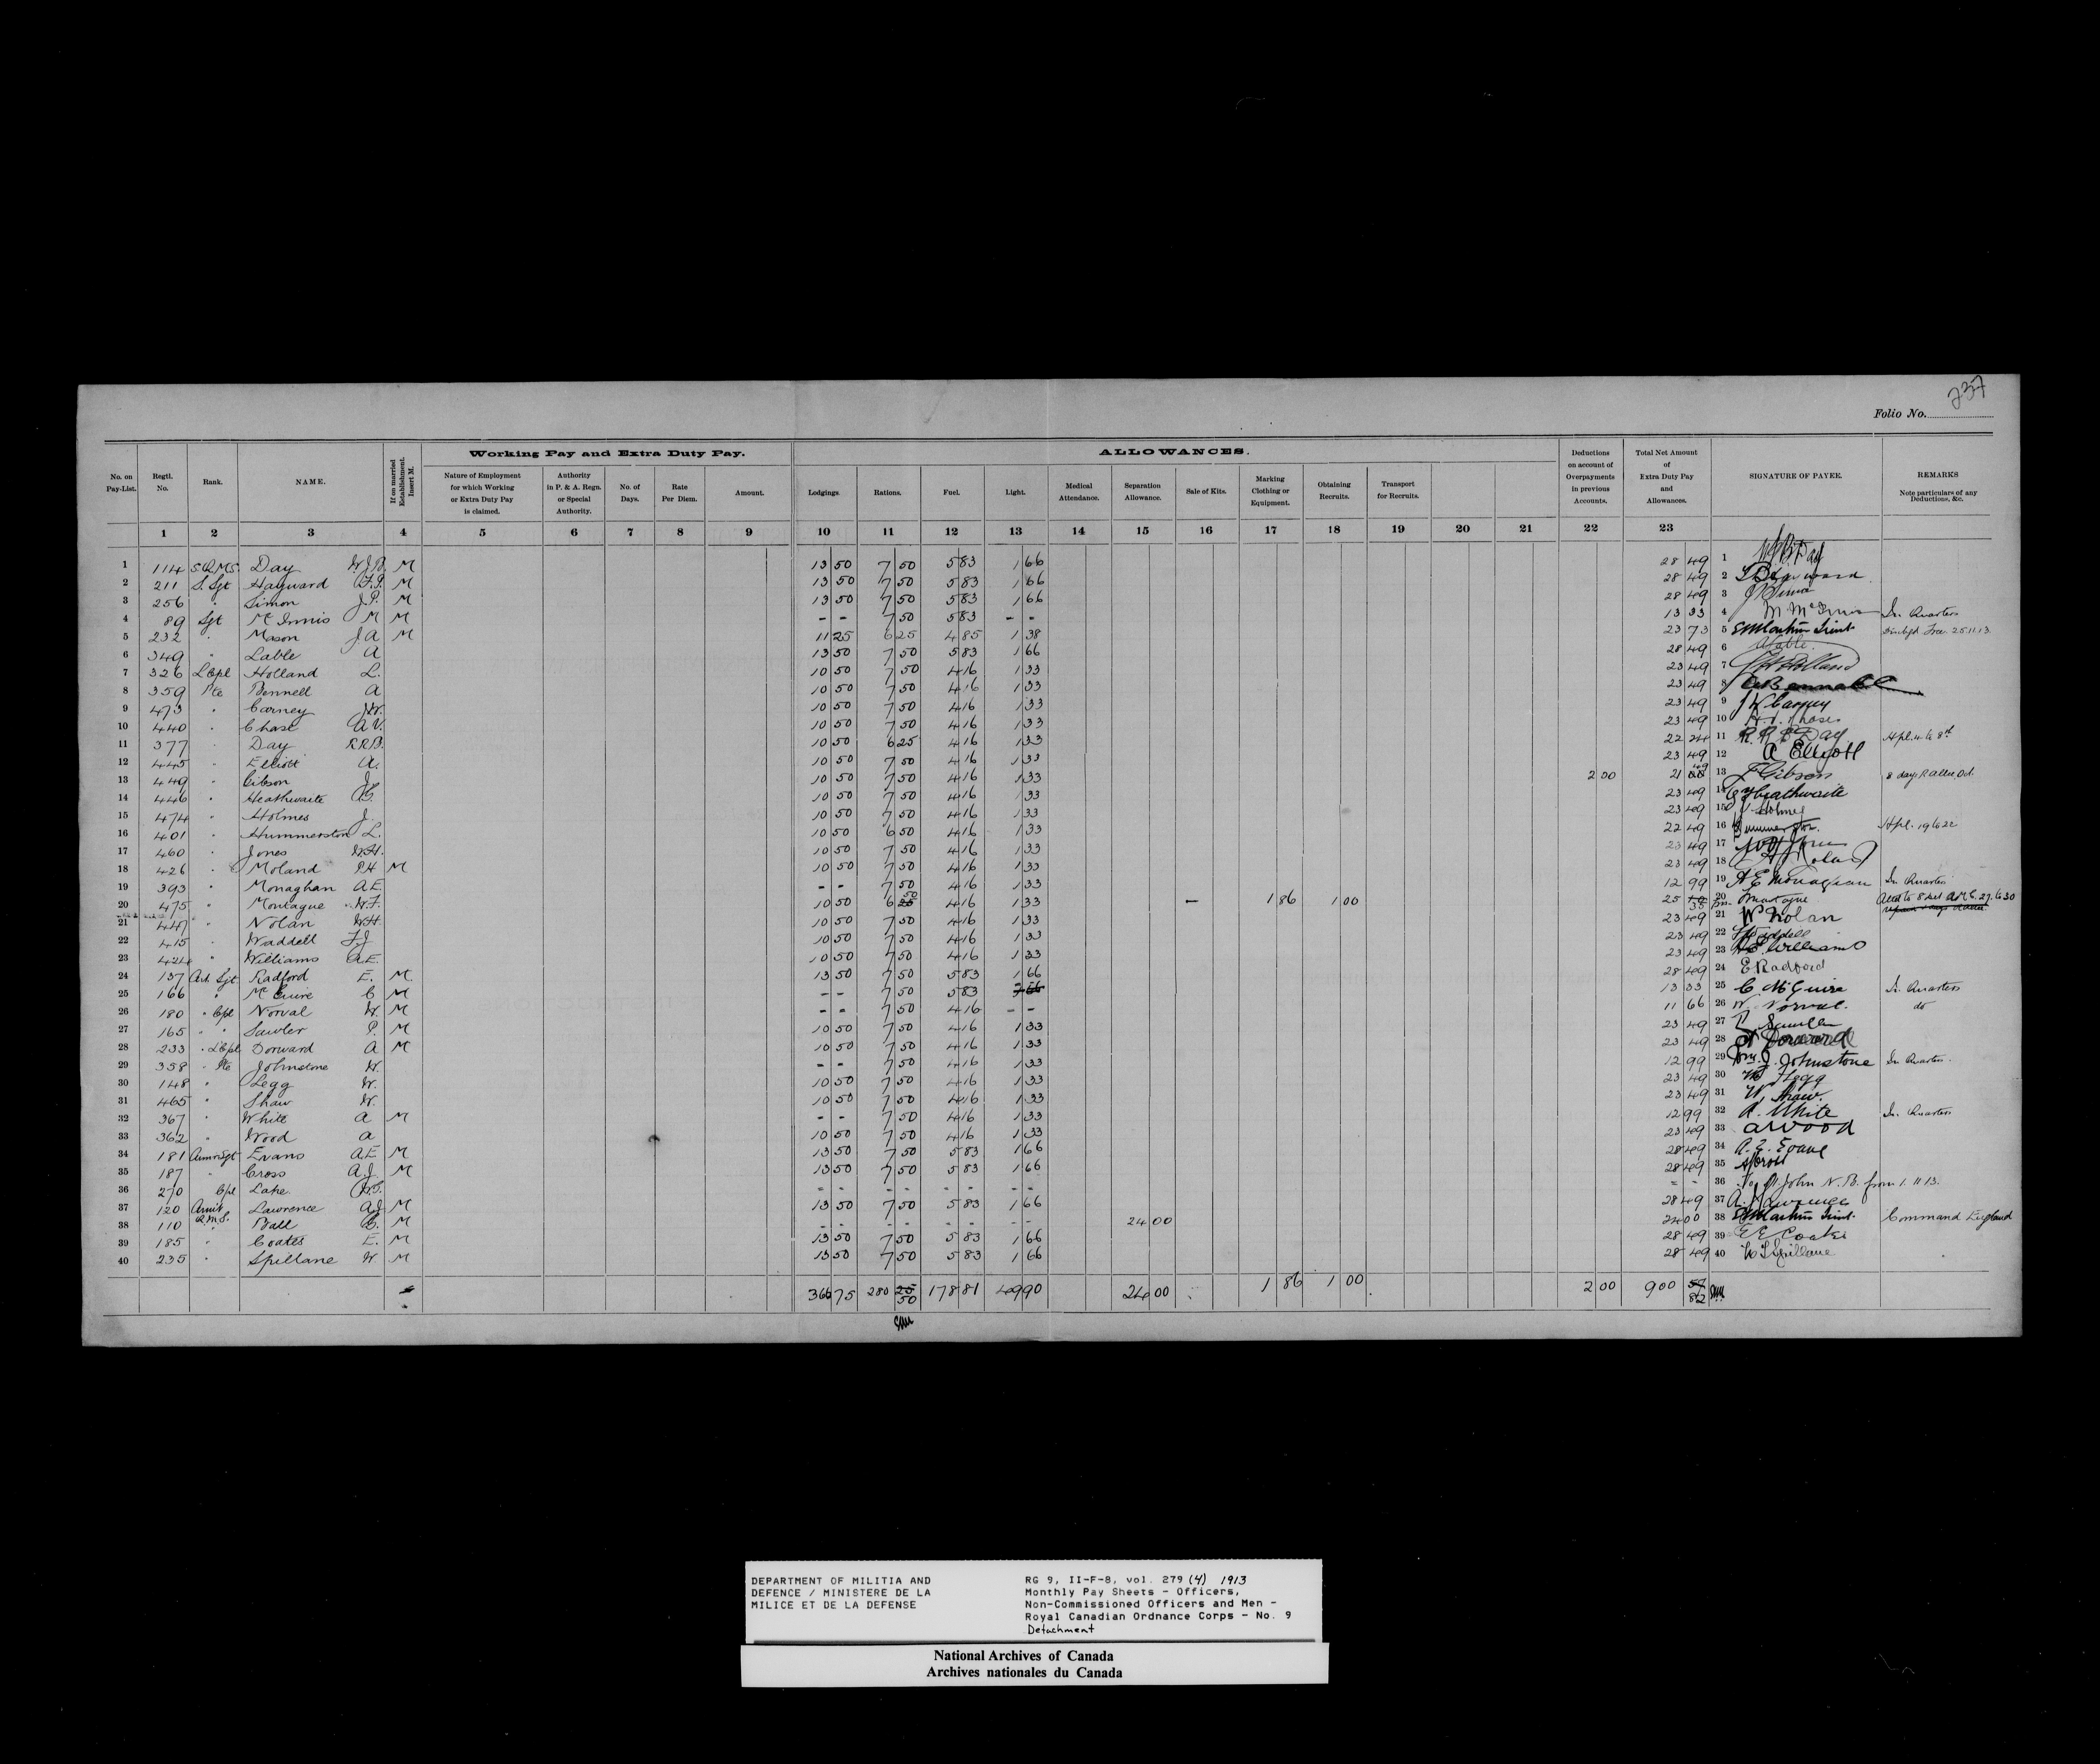 237
Folio No.
Working Pay and Extra Duty Pay. ALLOWANCES.
No. on Pay-List. Regtl. No. Rank. NAME. If on married Establishment. Insert M. Nature of Employment for which Working or Extra Duty Pay is claimed. Authority in P. & A. Regn. or Special Authority. No. of Days. Rate Per Diem. Amount. Lodgings. Rations. Fuel. Light. Medical Attendance. Separation Allowance. Sale of Kits. Marking Clothing or Equipment. Obtaining Recruits. Transport for Recruits. Deductions on account of Overpayments in previous Accounts. Total Net Amount of Extra Duty Pay and Allowances. SIGNATURE OF PAYEE. REMARKS Note particulars of any Deductions, &c.
1 2 3 4 5 6 7 8 9 10 11 12 13 14 15 16 17 18 19 20 21 22 23
1 114 S.Q.M.S. Day W.J.B. M 13 50 7 50 5 83 1 66 28 49 1 W.J.B. Day
2 211 S. Sgt Hayward M 13 50 7 50 5 83 1 66 28 49 2
3 256 " Simon J.P. M 13 50 7 50 5 83 1 66 28 49 3
4 89 Sgt McInnis M M - - 7 50 5 83 - - 13 33 4 M McInnis In Quarters
5 232 " Mason J.A M 11 25 6 25 4 85 1 38 23 73 5 Disch'd. Free 25.11.13
6 349 " Lable A 13 50 7 50 5 83 1 66 28 49 6 Lable
7 326 L Cpl Holland L. 10 50 7 50 4 16 1 33 23 49 7 Holland
8 359 Pte Bennell A 10 50 7 50 4 16 1 33 23 49 8
9 473 " Carney W. 10 50 7 50 4 16 1 33 23 49 9 W Carney
10 440 " Chase A V. 10 50 7 50 4 16 1 33 23 49 10 A.V. Chase
11 377 " Day R.R.B. 10 50 6 25 4 16 1 33 22 24 11 R. R. B Day Hpl. 4 to 8th
12 445 " Elliott A. 10 50 7 50 4 16 1 33 23 49 12 A Elliott
13 449 " Gibson J. 10 50 7 50 4 16 1 33 2 00 21 49 13 J Gibson 8 days R allce Oct.
14 446 " Heathwaite 10 50 7 50 4 16 1 33 23 49 14 Heathwaite
15 474 " Holmes J. 10 50 7 50 4 16 1 33 23 49 15 J Holmes
16 401 " Hummerston L. 10 50 6 50 4 16 1 33 22 49 16 Hummerston. Hpl. 19 to 22
17 460 " Jones W.H. 10 50 7 50 4 16 1 33 23 49 17 W H Jones
18 426 " Moland P.H M 10 50 7 50 4 16 1 33 23 49 18
19 393 " Monaghan A E. - - 7 50 4 16 1 33 12 99 19 A E Monaghan In Quarters
20 475 " Montague W.F. 10 50 6 50 4 16 1 33 - 1 86 1 00 25 35 20 Montague Attd to 8 Det A.M.C. 27. to 30
21 447 " Nolan W.H. 10 50 7 50 4 16 1 33 23 49 21 W Nolan
22 415 " Waddell F.J 10 50 7 50 4 16 1 33 23 49 22 Waddell
23 424 " Williams A.E. 10 50 7 50 4 16 1 33 23 49 23 A.E. Williams
24 137 Art. Sgt. Radford E. M 13 50 7 50 5 83 1 66 28 49 24 E Radford
25 166 " McGuire C M - - 7 50 5 83 13 33 25 C McGuire In Quarters
26 180 " Cpl Norval W. M - - 7 50 4 16 - - 11 66 26 W. Norval. do
27 165 " " Sawler P. M 10 50 7 50 4 16 1 33 23 49 27
28 233 " L Cpl Dorward A M 10 50 7 50 4 16 1 33 23 49 28 A Dorward
29 358 " Pte Johnstone W. - - 7 50 4 16 1 33 12 99 29 Wm. J. Johnstone In Quarters.
30 148 " Legg W. 10 50 7 50 4 16 1 33 23 49 30 W Legg
31 465 " Shaw W. 10 50 7 50 4 16 1 33 23 49 31 W. Shaw.
32 367 " White A M - - 7 50 4 16 1 33 12 99 32 A. White In Quarters
33 362 " Wood A 10 50 7 50 4 16 1 33 23 49 33 A Wood
34 181 Armr Sgt Evans A E M 13 50 7 50 5 83 1 66 28 49 34 A. E. Evans
35 187 " Cross A.J. M 13 50 7 50 5 83 1 66 28 49 35 Cross
36 270 Cpl Lake - - - - - - - - - - 36 To St. John N.B. from 1.11.13.
37 120 Armt Q.M.S. Lawrence A.J M 13 50 7 50 5 83 1 66 28 49 37 A. Lawrence
38 110 " Ball M - - - - - - - - 24 00 24 00 38 Command England
39 185 " Coates E. M 13 50 7 50 5 83 1 66 28 49 39 E E Coates
40 235 " Spillane W M 13 50 7 50 5 83 1 66 28 49 40 W Spillane
366 75 280 50 178 81 49 90 24 00 1 86 1 00 2 00 900 82
DEPARTMENT OF MILITIA AND
DEFENCE / MINISTERE DE LA
MILICE ET DE LA DEFENSE
RG 9, II-F-8, vol. 279 (4) 1913
Monthly Pay Sheets - Officers,
Non-Commissioned Officers and Men -
Royal Canadian Ordnance Corps - No. 9
Detachment
National Archives of Canada
Archives nationales du Canada